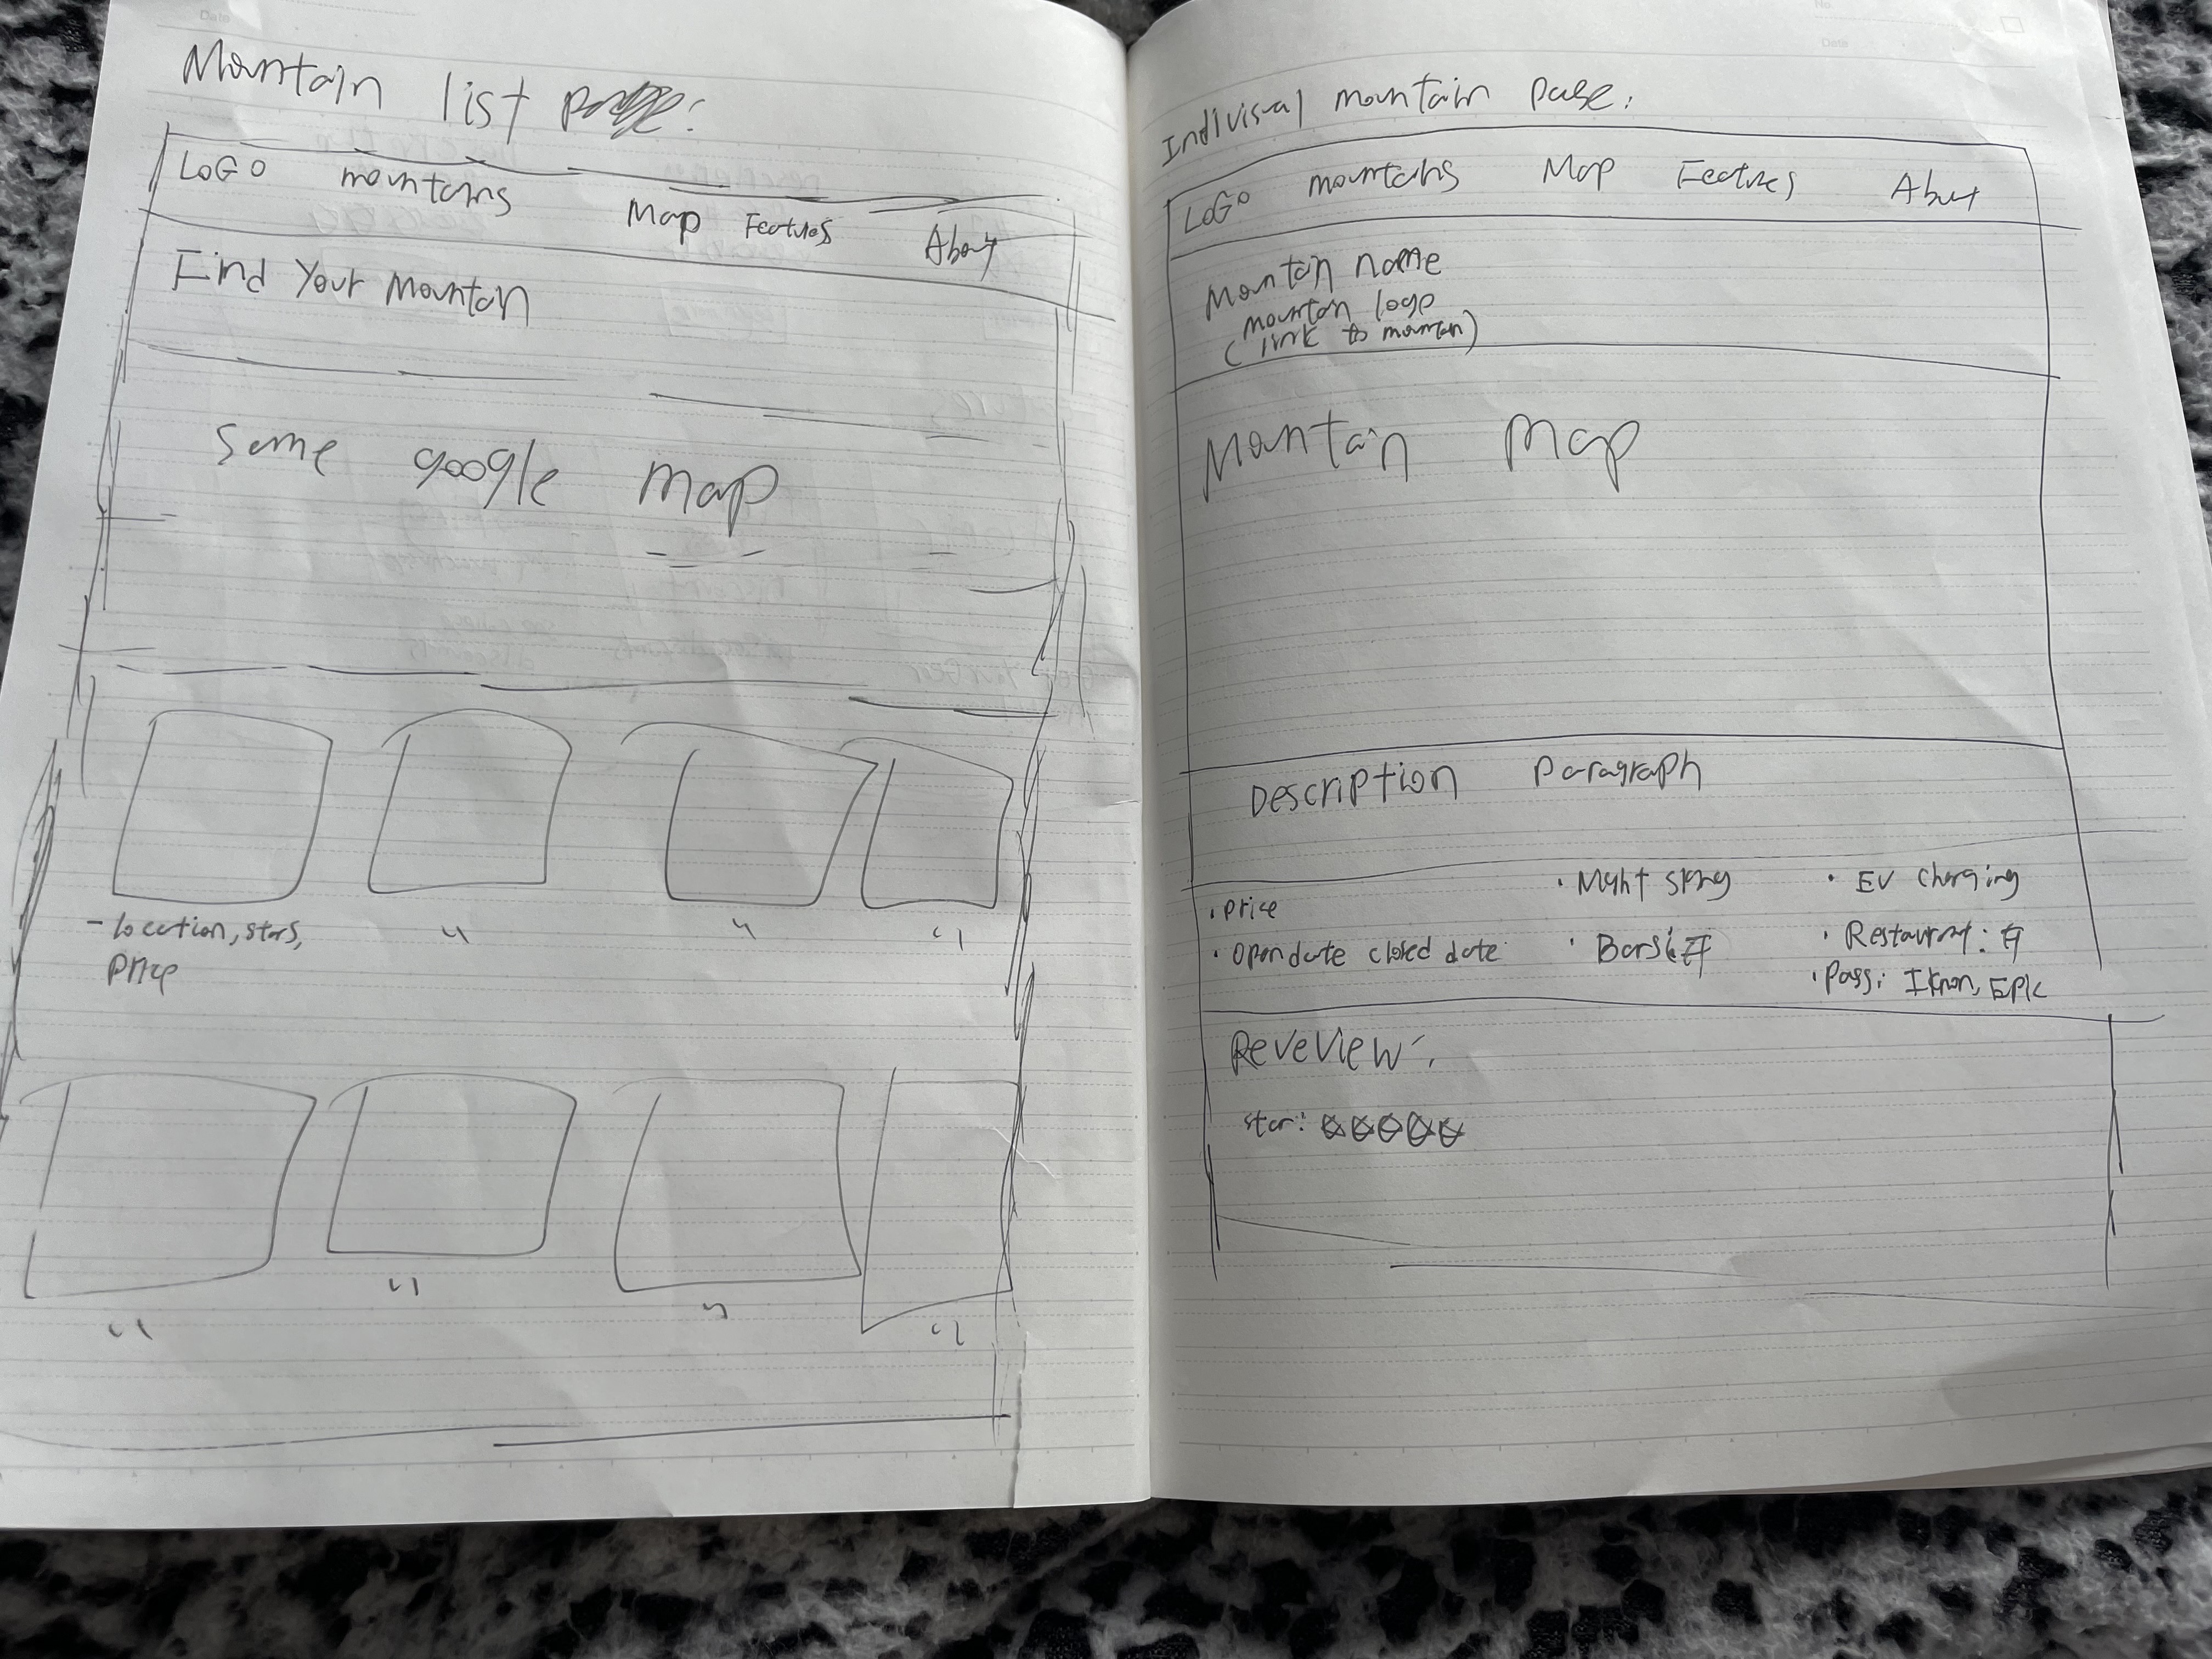 Mountain list page:
LOGO mountains Map Features About
Find Your Mountain
Some google map
- location, stars,
"
"
"
"
"
"
"
Indivisual mountain page:
LOGO mountains Map Features About
Mountain name
mountain logo
(link to mountain)
Mountain Map
Description Paragraph
• price
• Night skiing
• EV charging
• open date closed date
• Bars: #
• Restaurant: #
• Pass: Ikon, Epic
Reveview:
star: ☆☆☆☆☆